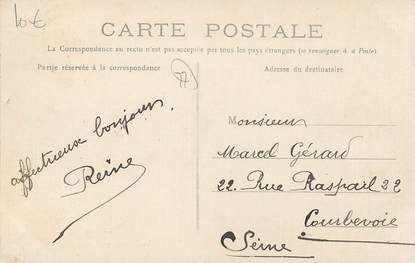 10€
CARTE POSTALE
La Correspondance au recto n'est pas acceptée par tous les pays étrangers (se renseigner à la Poste)
Partie réservée à la correspondance
Adresse du destinataire
77
affectueux bonjour
Reine
Monsieur
Marcel Gérard
22. Rue Raspail 22
Courbevoie
Seine